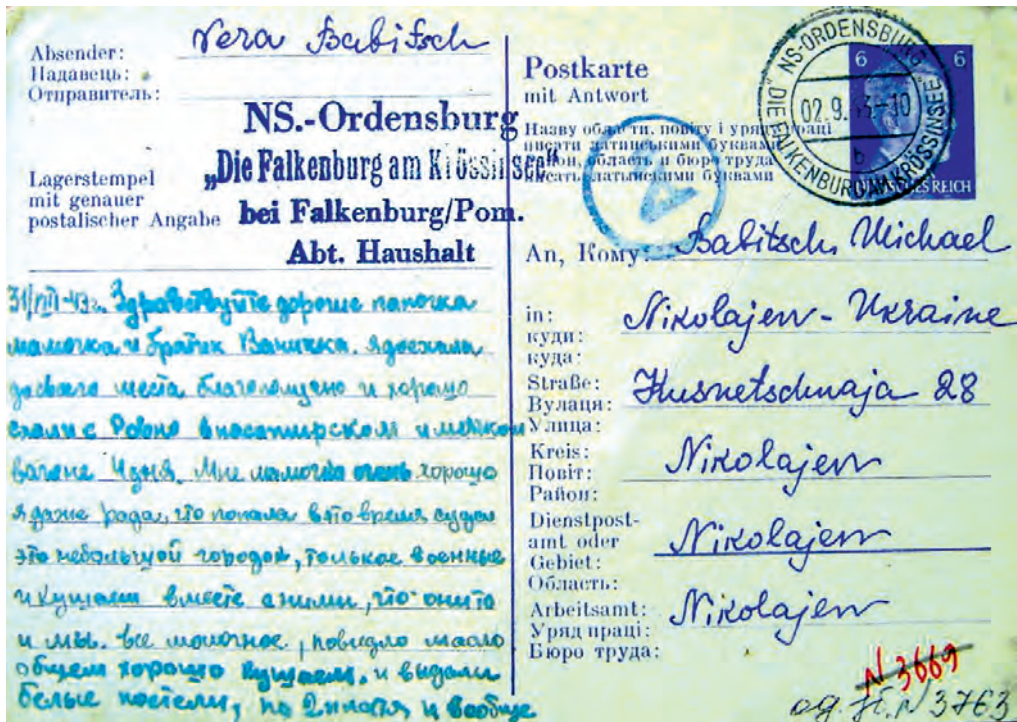 Absender:
Надавець:
Отправитель:
Vera Babitsch
NS.-Ordensburg
„Die Falkenburg am Krössinsee“
bei Falkenburg/Pom.
Abt. Haushalt
Lagerstempel
mit genauer
postalischer Angabe
31/VIII-43г. Здравствуйте дорогие папочка
мамочка и братик Ваничка. Я доехала
до своего места благополучно и хорошо
ехали с Ровно в пасажирском и мягком
вагоне 4 дня. Мне мамочка очень хорошо
я даже рада, что попала в это время сюда
это небольшой городок, только военные
и кушаем вместе с ними, что они то
и мы. все молочное, повидло масло
общем хорошо кушаем. и выдали
белые постели, по 2 платя и вообще
Postkarte
mit Antwort
Назву области, повіту і уряд праці
писати латинськими буквами
Район, область и бюро труда
писать латынскими буквами
NS-ORDENSBURG
"DIE FALKENBURG AM KRÖSSINSEE"
02.9.43-10
b
6 6
DEUTSCHES REICH
A
An, Кому: Babitsch, Michael
in:
куди:
куда:
Nikolajew - Ukraine
Straße:
Вулаця:
Улица:
Kusnetschnaja 28
Kreis:
Повіт:
Район:
Nikolajew
Dienstpost-
amt oder
Gebiet:
Область:
Nikolajew
Arbeitsamt:
Уряд праці:
Бюро труда:
Nikolajew
N 3669
N 3763